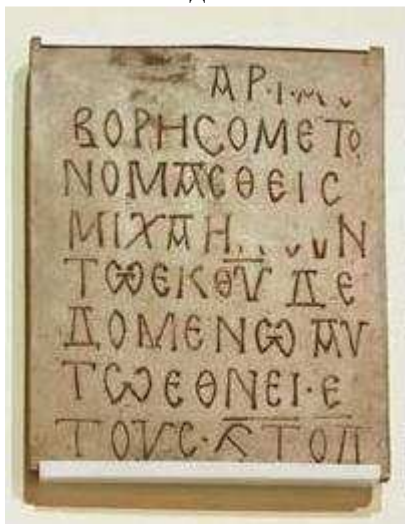 ΒΟΡΗϹΟΜΕΤΟ
ΝΟΜΑϹΘΕΙϹ
ΜΙΧΑΗ Ν
ΤѠΕΚΘ̅Υ̅ΔΕ
ΔΟΜΕΝѠΑΥ
ΤѠΕΘΝΕΙ·Ε
ΤΟΥϹ·ϚΤΟΔ